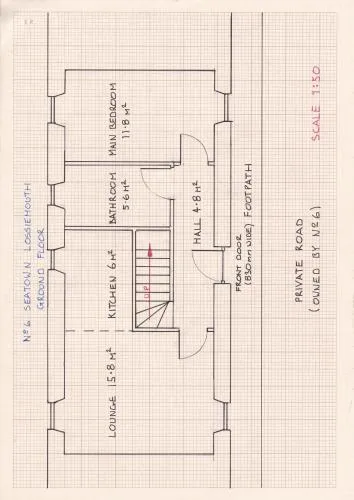 Nº 6. SEATOWN LOSSIEMOUTH
GROUND FLOOR
MAIN BEDROOM
11·8 M²
BATHROOM
5·6 M²
KITCHEN 6 M²
LOUNGE 15·8 M²
UP
HALL 4·8 M²
FRONT DOOR
(830mm WIDE)
FOOTPATH
PRIVATE ROAD
(OWNED BY Nº 6)
SCALE 1:50